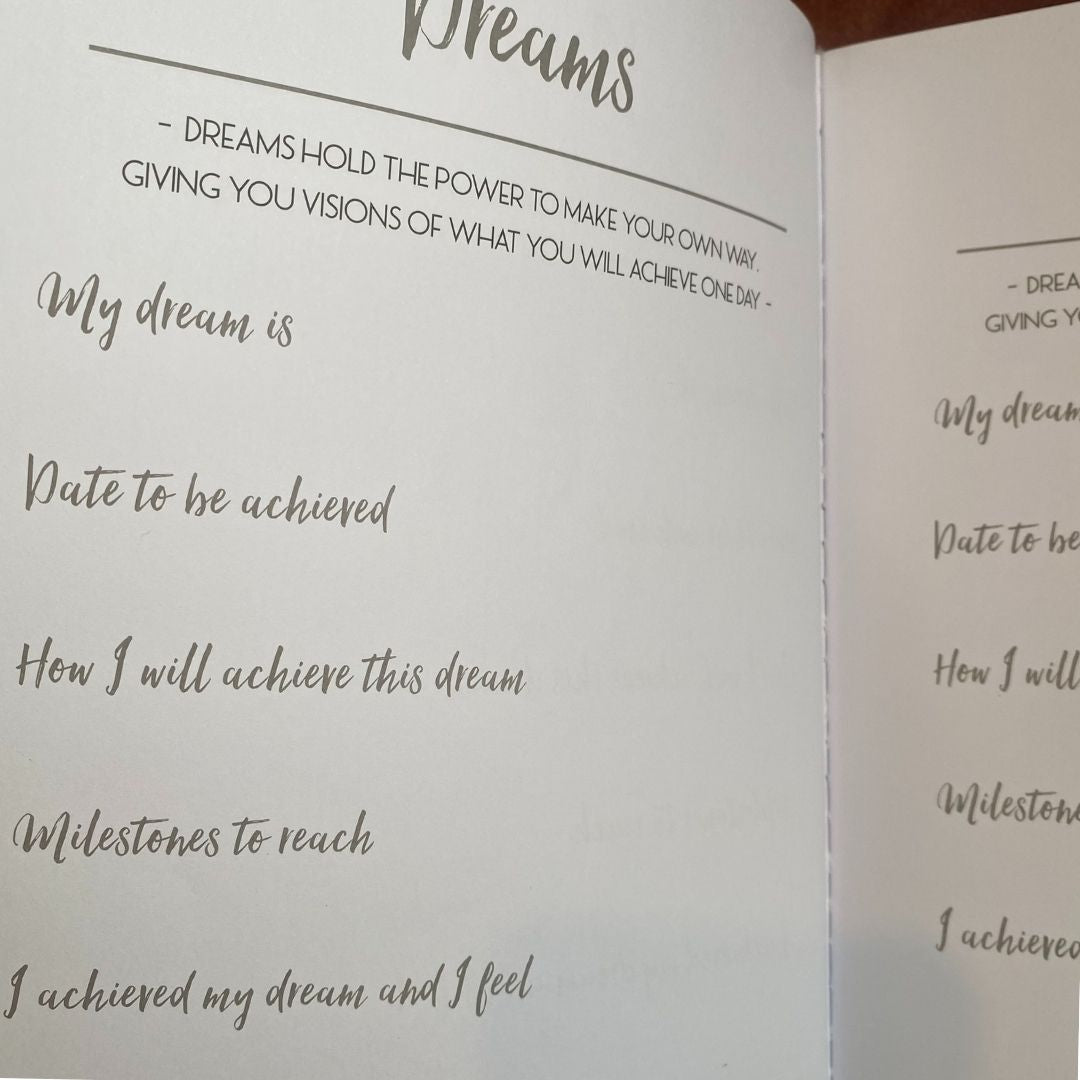 Dreams
- DREAMS HOLD THE POWER TO MAKE YOUR OWN WAY.
GIVING YOU VISIONS OF WHAT YOU WILL ACHIEVE ONE DAY -
My dream is
Date to be achieved
How I will achieve this dream
Milestones to reach
I achieved my dream and I feel
- DREA
GIVING YO
My dream
Date to be
How I will
Milestone
I achieved